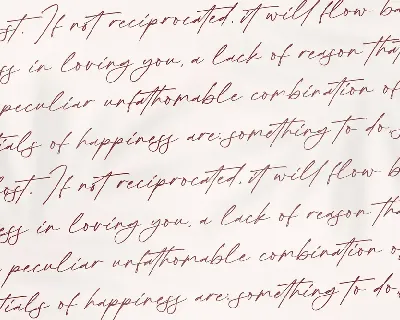 ost. If not reciprocated, it will flow ba
ss in loving you, a lack of reason that
peculiar unfathomable combination of
tials of happiness are: something to do,
lost. If not reciprocated, it will flow b
ess in loving you, a lack of reason tha
peculiar unfathomable combination o
tials of happiness are: something to do,